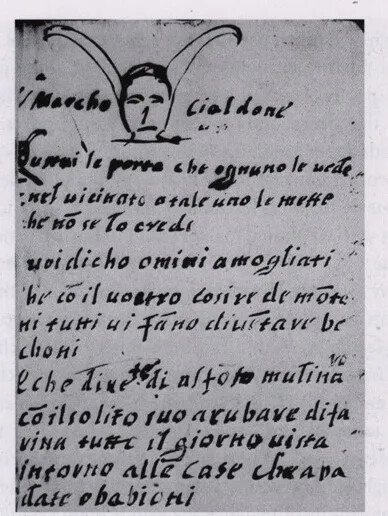 il Marcho Cialdone
Quivi le porta che ognuno le uede
nel uicinato a tale uno le mette
che nõ se lo crede
uoi dicho omini amogliati
che cõ il uostro cosire de mõte
ni tutti ui fãno diuẽtare be
choni
E che dite di
cõ il solito suo arubare difa
rina tutto il giorno uista
intorno alle case che apa
date o babioni